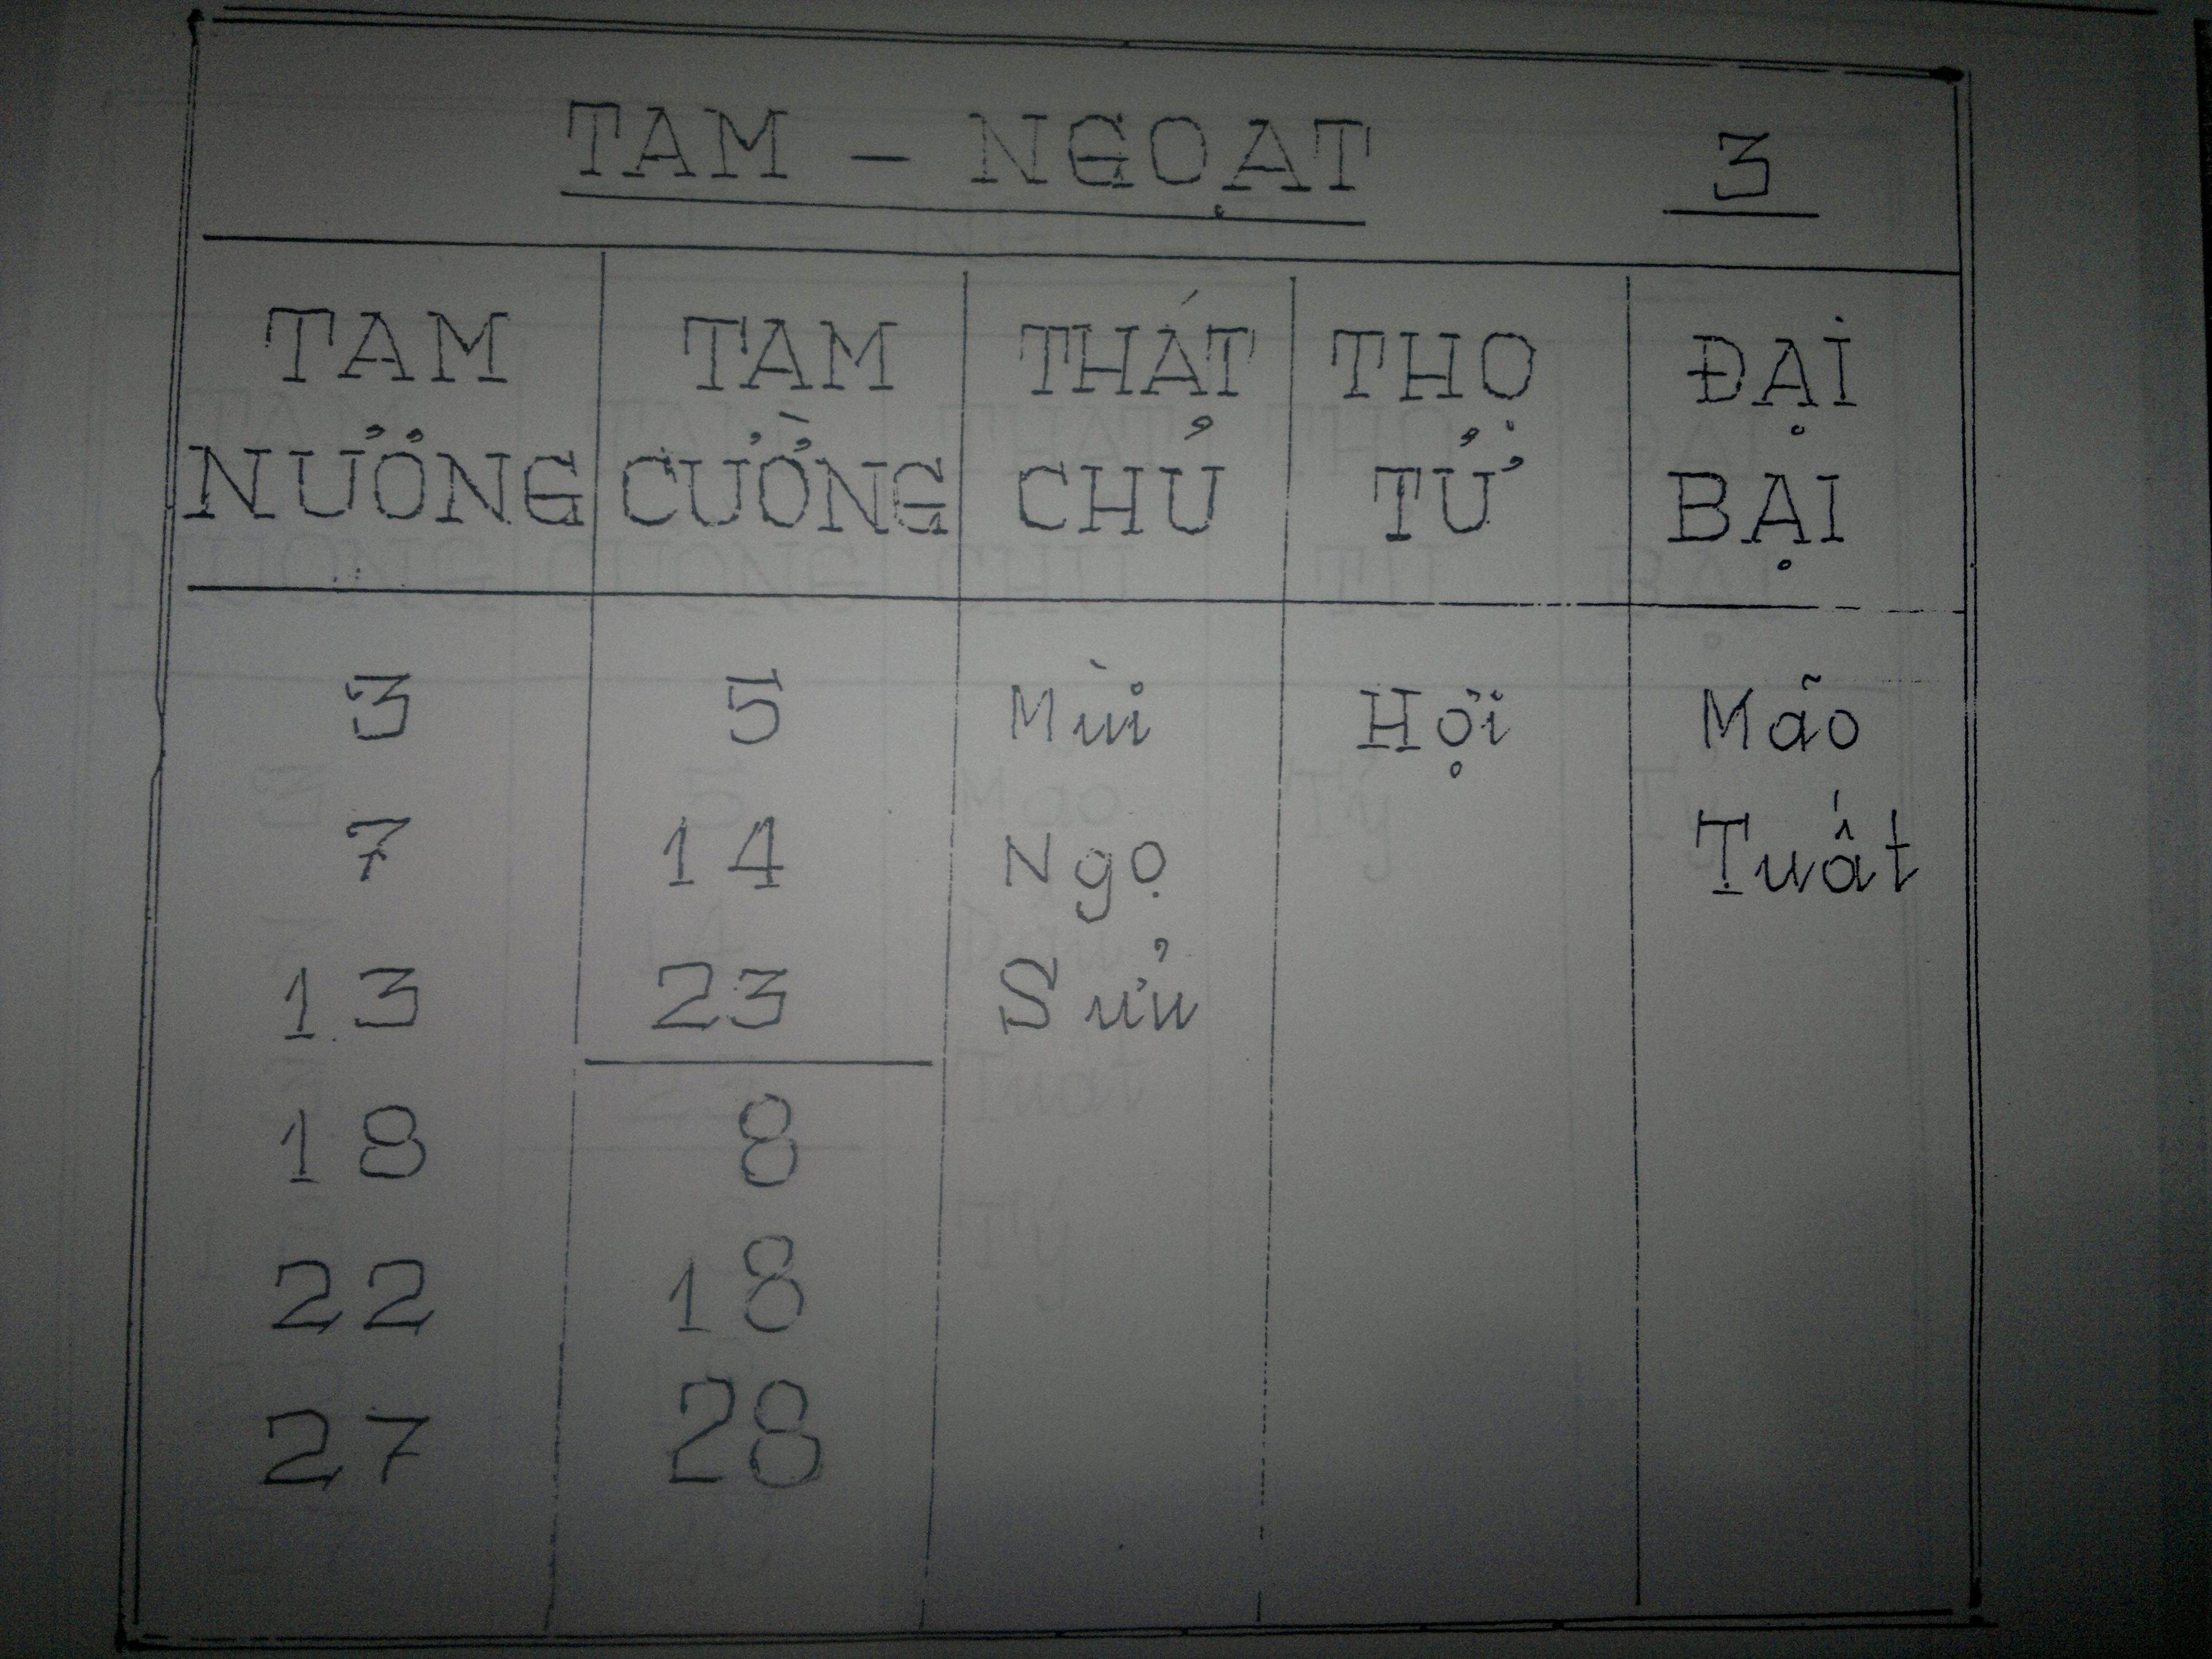 TAM - NGOẠT 3
TAM NƯƠNG TAM CƯỜNG THÁT CHỦ THỌ TỬ ĐẠI BẠI
3 5 Mùi Hợi Mão
7 14 Ngọ Tuất
13 23 Sửu
18 8
22 18
27 28